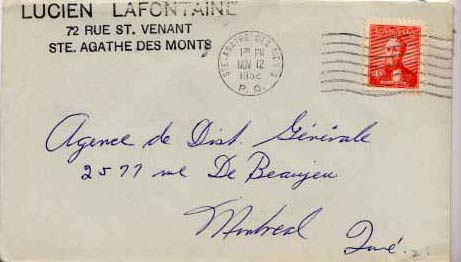 LUCIEN LAFONTAINE
72 RUE ST. VENANT
STE. AGATHE DES MONTS
STE-AGATHE-DES-MONTS
1 PM
NOV 12
1952
P. Q.
CANADA
Agence de Dist. Générale
2577 rue De Beaujeu
Montreal
Qué.